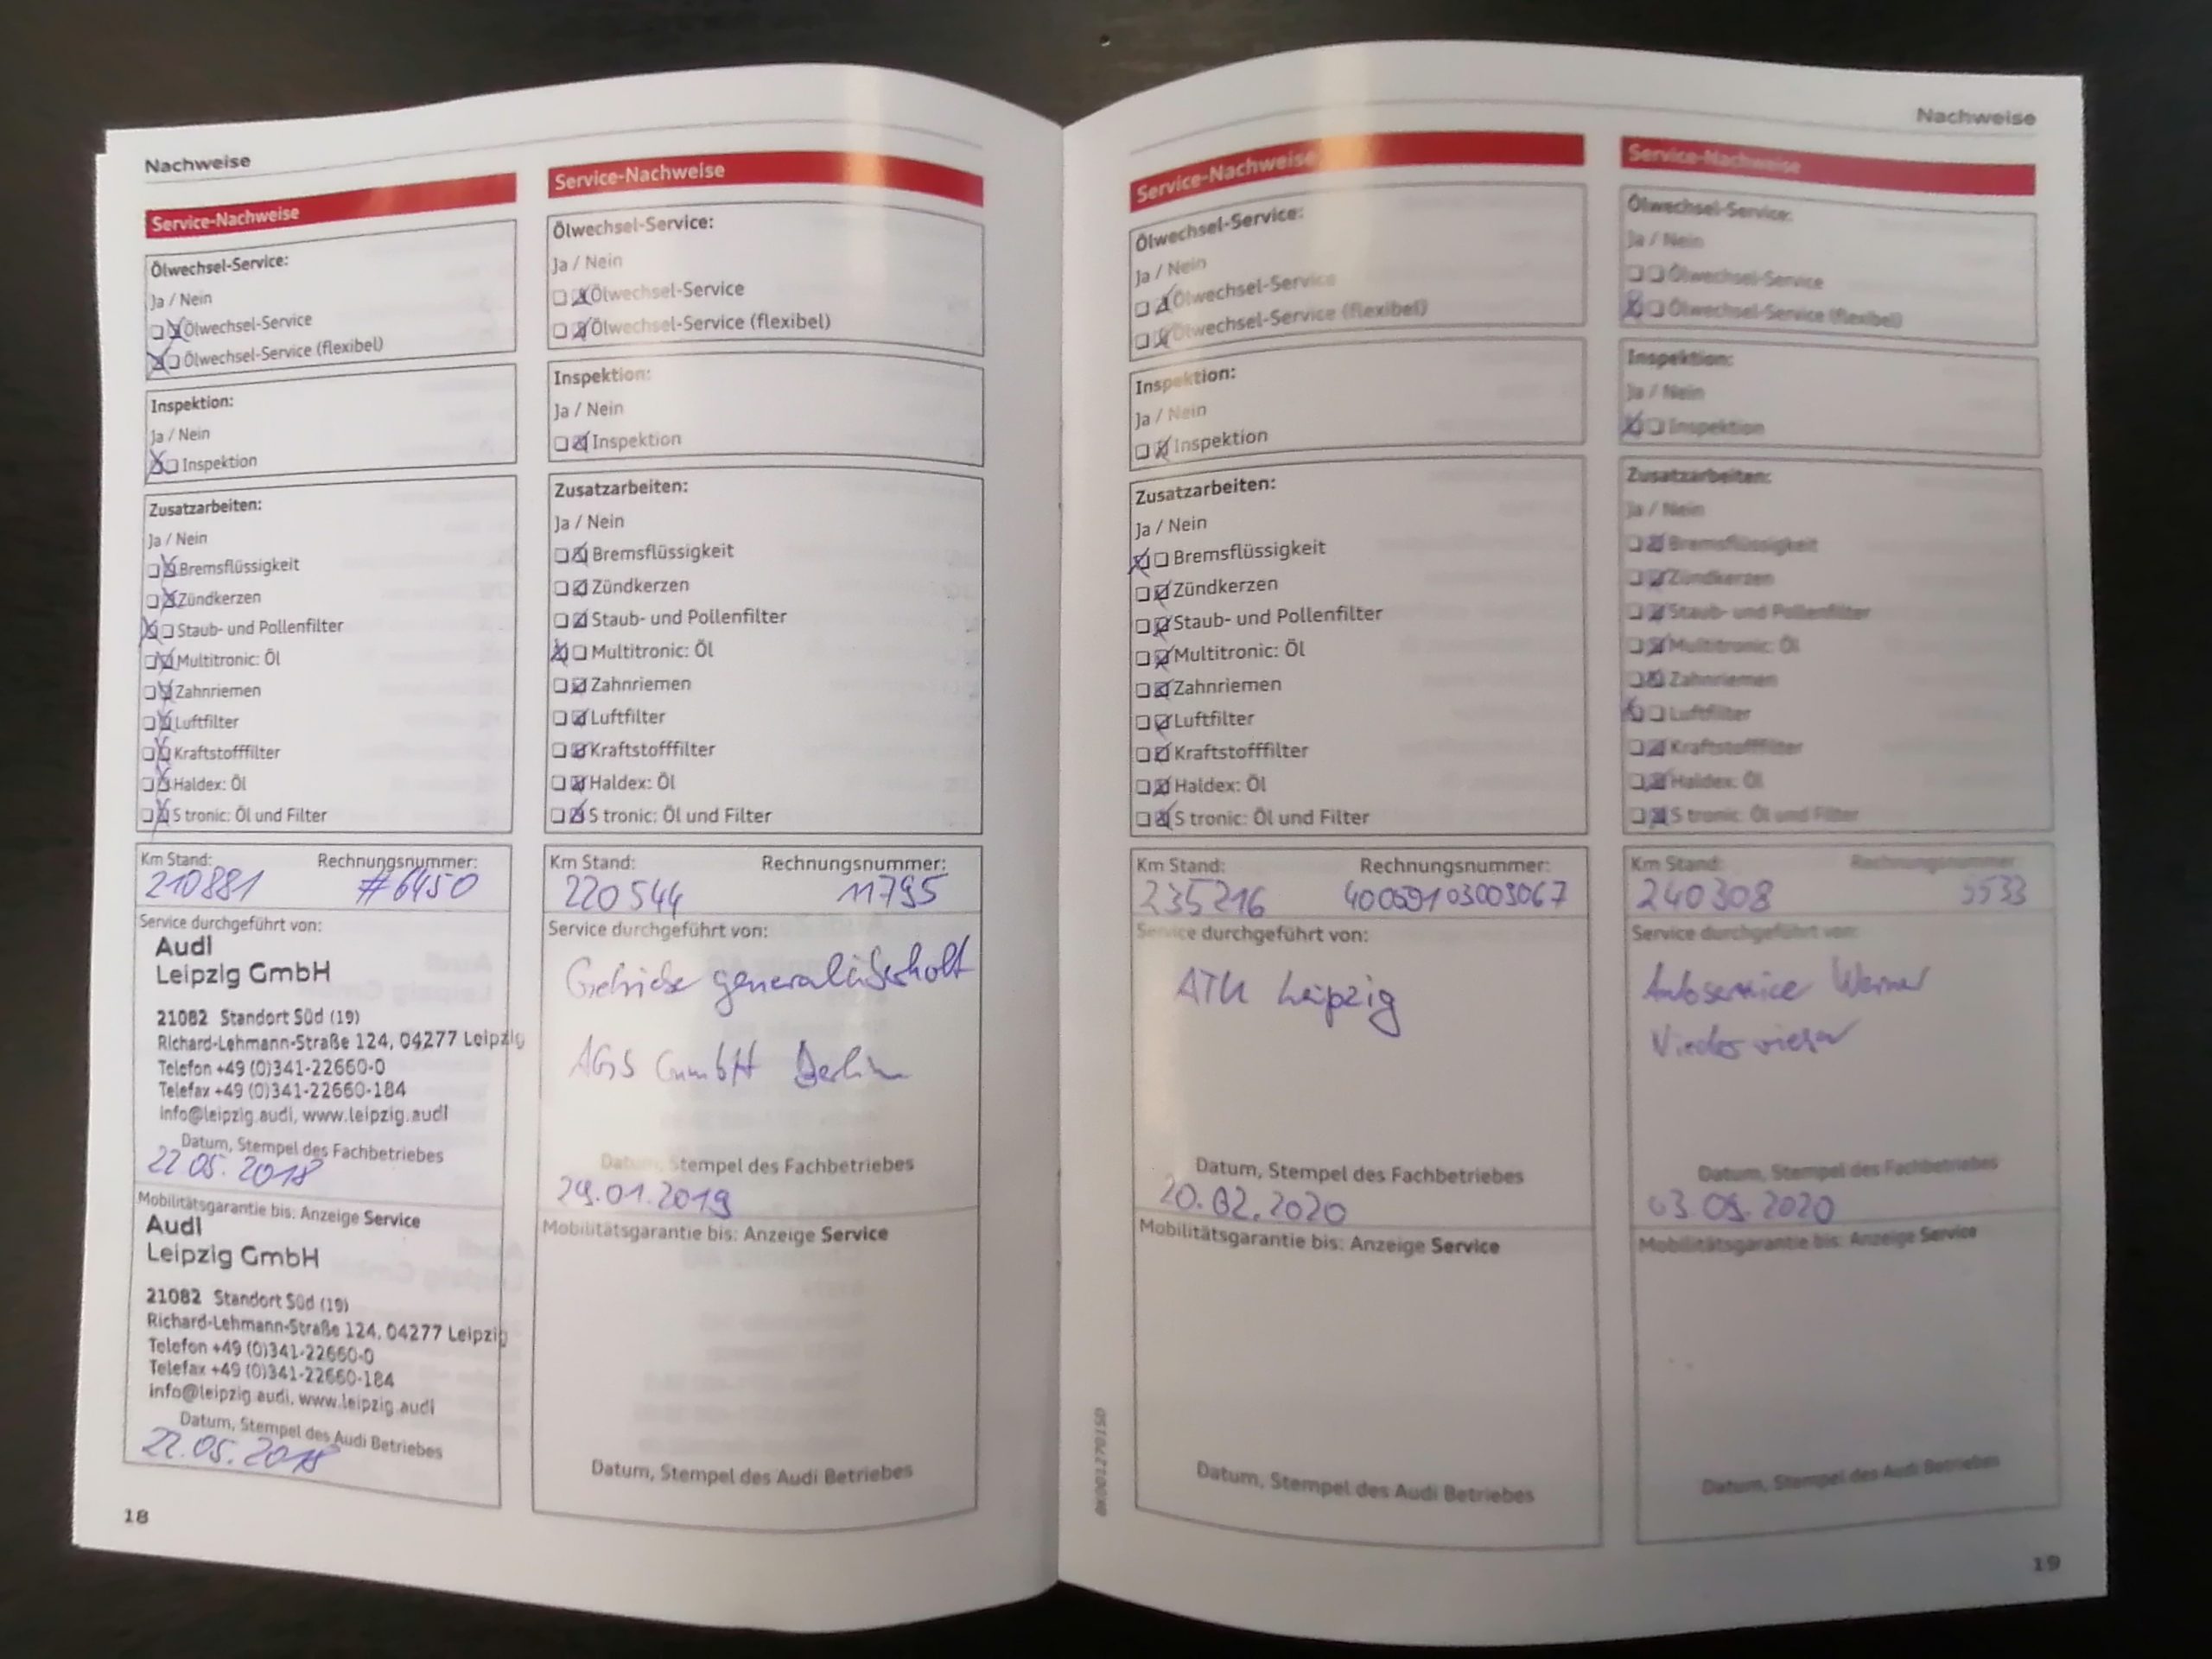 Nachweise
Service-Nachweise
Ölwechsel-Service:
Ja / Nein
Ölwechsel-Service
Ölwechsel-Service (flexibel)
Inspektion:
Ja / Nein
Inspektion
Zusatzarbeiten:
Ja / Nein
Bremsflüssigkeit
Zündkerzen
Staub- und Pollenfilter
Multitronic: Öl
Zahnriemen
Luftfilter
Kraftstofffilter
Haldex: Öl
S tronic: Öl und Filter
Km Stand: Rechnungsnummer:
210881 #6450
Service durchgeführt von:
Audi
Leipzig GmbH
21082 Standort Süd (19)
Richard-Lehmann-Straße 124, 04277 Leipzig
Telefon +49 (0)341-22660-0
Telefax +49 (0)341-22660-184
info@leipzig.audi, www.leipzig.audi
Datum, Stempel des Fachbetriebes
22.05.2018
Mobilitätsgarantie bis: Anzeige Service
Audi
Leipzig GmbH
21082 Standort Süd (19)
Richard-Lehmann-Straße 124, 04277 Leipzig
Telefon +49 (0)341-22660-0
Telefax +49 (0)341-22660-184
info@leipzig.audi, www.leipzig.audi
Datum, Stempel des Audi Betriebes
22.05.2018
18
Service-Nachweise
Ölwechsel-Service:
Ja / Nein
Ölwechsel-Service
Ölwechsel-Service (flexibel)
Inspektion:
Ja / Nein
Inspektion
Zusatzarbeiten:
Ja / Nein
Bremsflüssigkeit
Zündkerzen
Staub- und Pollenfilter
Multitronic: Öl
Zahnriemen
Luftfilter
Kraftstofffilter
Haldex: Öl
S tronic: Öl und Filter
Km Stand: Rechnungsnummer:
220544 11795
Service durchgeführt von:
Getriebe generalüberholt
AGS GmbH Berlin
Datum, Stempel des Fachbetriebes
29.01.2019
Mobilitätsgarantie bis: Anzeige Service
Datum, Stempel des Audi Betriebes
Nachweise
Service-Nachweise
Ölwechsel-Service:
Ja / Nein
Ölwechsel-Service
Ölwechsel-Service (flexibel)
Inspektion:
Ja / Nein
Inspektion
Zusatzarbeiten:
Ja / Nein
Bremsflüssigkeit
Zündkerzen
Staub- und Pollenfilter
Multitronic: Öl
Zahnriemen
Luftfilter
Kraftstofffilter
Haldex: Öl
S tronic: Öl und Filter
Km Stand: Rechnungsnummer:
235216
Service durchgeführt von:
ATU Leipzig
Datum, Stempel des Fachbetriebes
20.02.2020
Mobilitätsgarantie bis: Anzeige Service
Datum, Stempel des Audi Betriebes
Service-Nachweise
Ölwechsel-Service:
Ja / Nein
Ölwechsel-Service
Ölwechsel-Service (flexibel)
Inspektion:
Ja / Nein
Inspektion
Zusatzarbeiten:
Ja / Nein
Bremsflüssigkeit
Zündkerzen
Staub- und Pollenfilter
Multitronic: Öl
Zahnriemen
Luftfilter
Kraftstofffilter
Haldex: Öl
S tronic: Öl und Filter
Km Stand: Rechnungsnummer:
240308 5533
Service durchgeführt von:
Autoservice Werner
Datum, Stempel des Fachbetriebes
03.09.2020
Mobilitätsgarantie bis: Anzeige Service
Datum, Stempel des Audi Betriebes
19